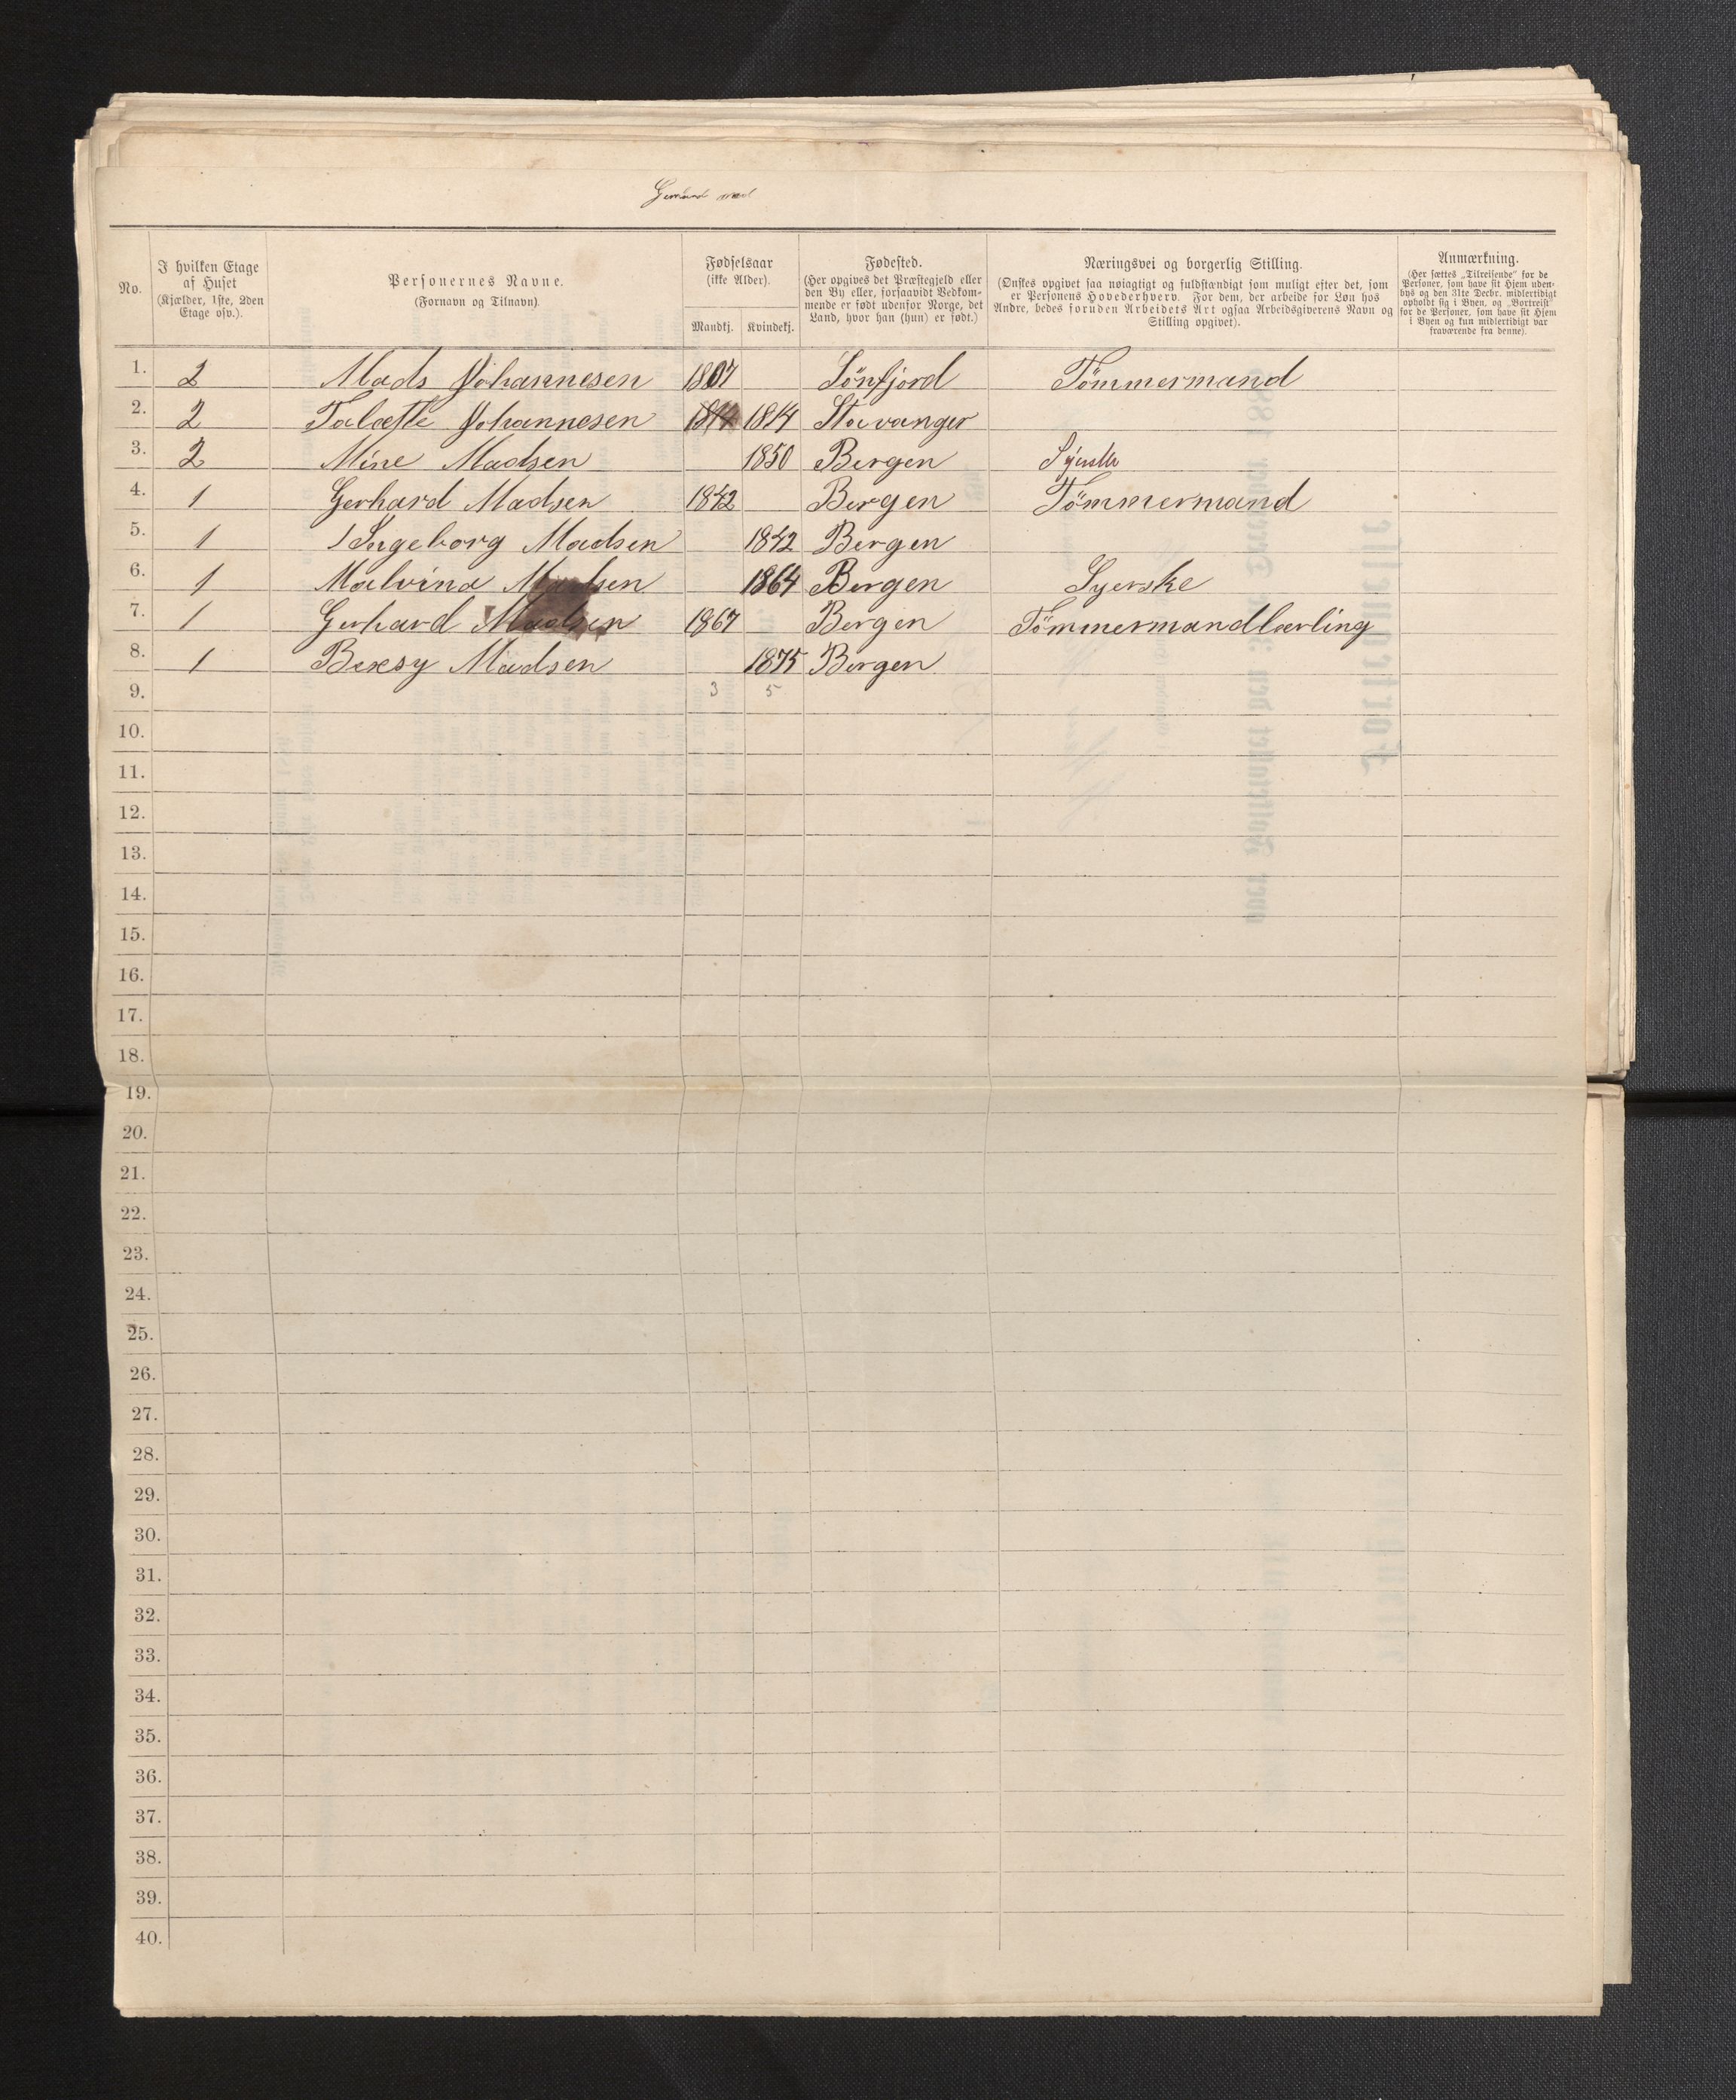 No.
I hvilken Etage af Huset (Kjælder, 1ste, 2den Etage osv.).
Personernes Navne. (Fornavn og Tilnavn).
Fødselsaar (ikke Alder).
Mandkj. Kvindekj.
Fødested. (Her opgives det Præstegjeld eller den By eller, forsaavidt Vedkommende er født udenfor Norge, det Land, hvor han (hun) er født.)
Næringsvei og borgerlig Stilling. (Ønskes opgivet saa nøiagtigt og fuldstændigt som muligt efter det, som er Personens Hovederhverv. For dem, der arbeide for Løn hos Andre, bedes foruden Arbeidets Art ogsaa Arbeidsgiverens Navn og Stilling opgivet).
Anmærkning. (Her sættes „Tilreisende" for de Personer, som have sit Hjem udenbys og den 31te Decbr. midlertidigt opholdt sig i Byen, og „Bortreist" for de Personer, som have sit Hjem i Byen og kun midlertidigt var fraværende fra denne).
1. 2 Mads Johannesen 1807 Sönfjord Tömmermand
2. 2 Johannesen 1814 1814 Stavanger
3. 2 Mine Madsen 1850 Bergen Syerske
4. 1 Gerhard Madsen 1842 Bergen Tömmermand
5. 1 Ingeborg Madsen 1842 Bergen
6. 1 Malvina Madsen 1864 Bergen Syerske
7. 1 Gerhard Madsen 1867 Bergen Tömmermandlærling
8. 1 Madsen 1875 Bergen
9. 3 5
10.
11.
12.
13.
14.
15.
16.
17.
18.
19.
20.
21.
22.
23.
24.
25.
26.
27.
28.
29.
30.
31.
32.
33.
34.
35.
36.
37.
38.
39.
40.